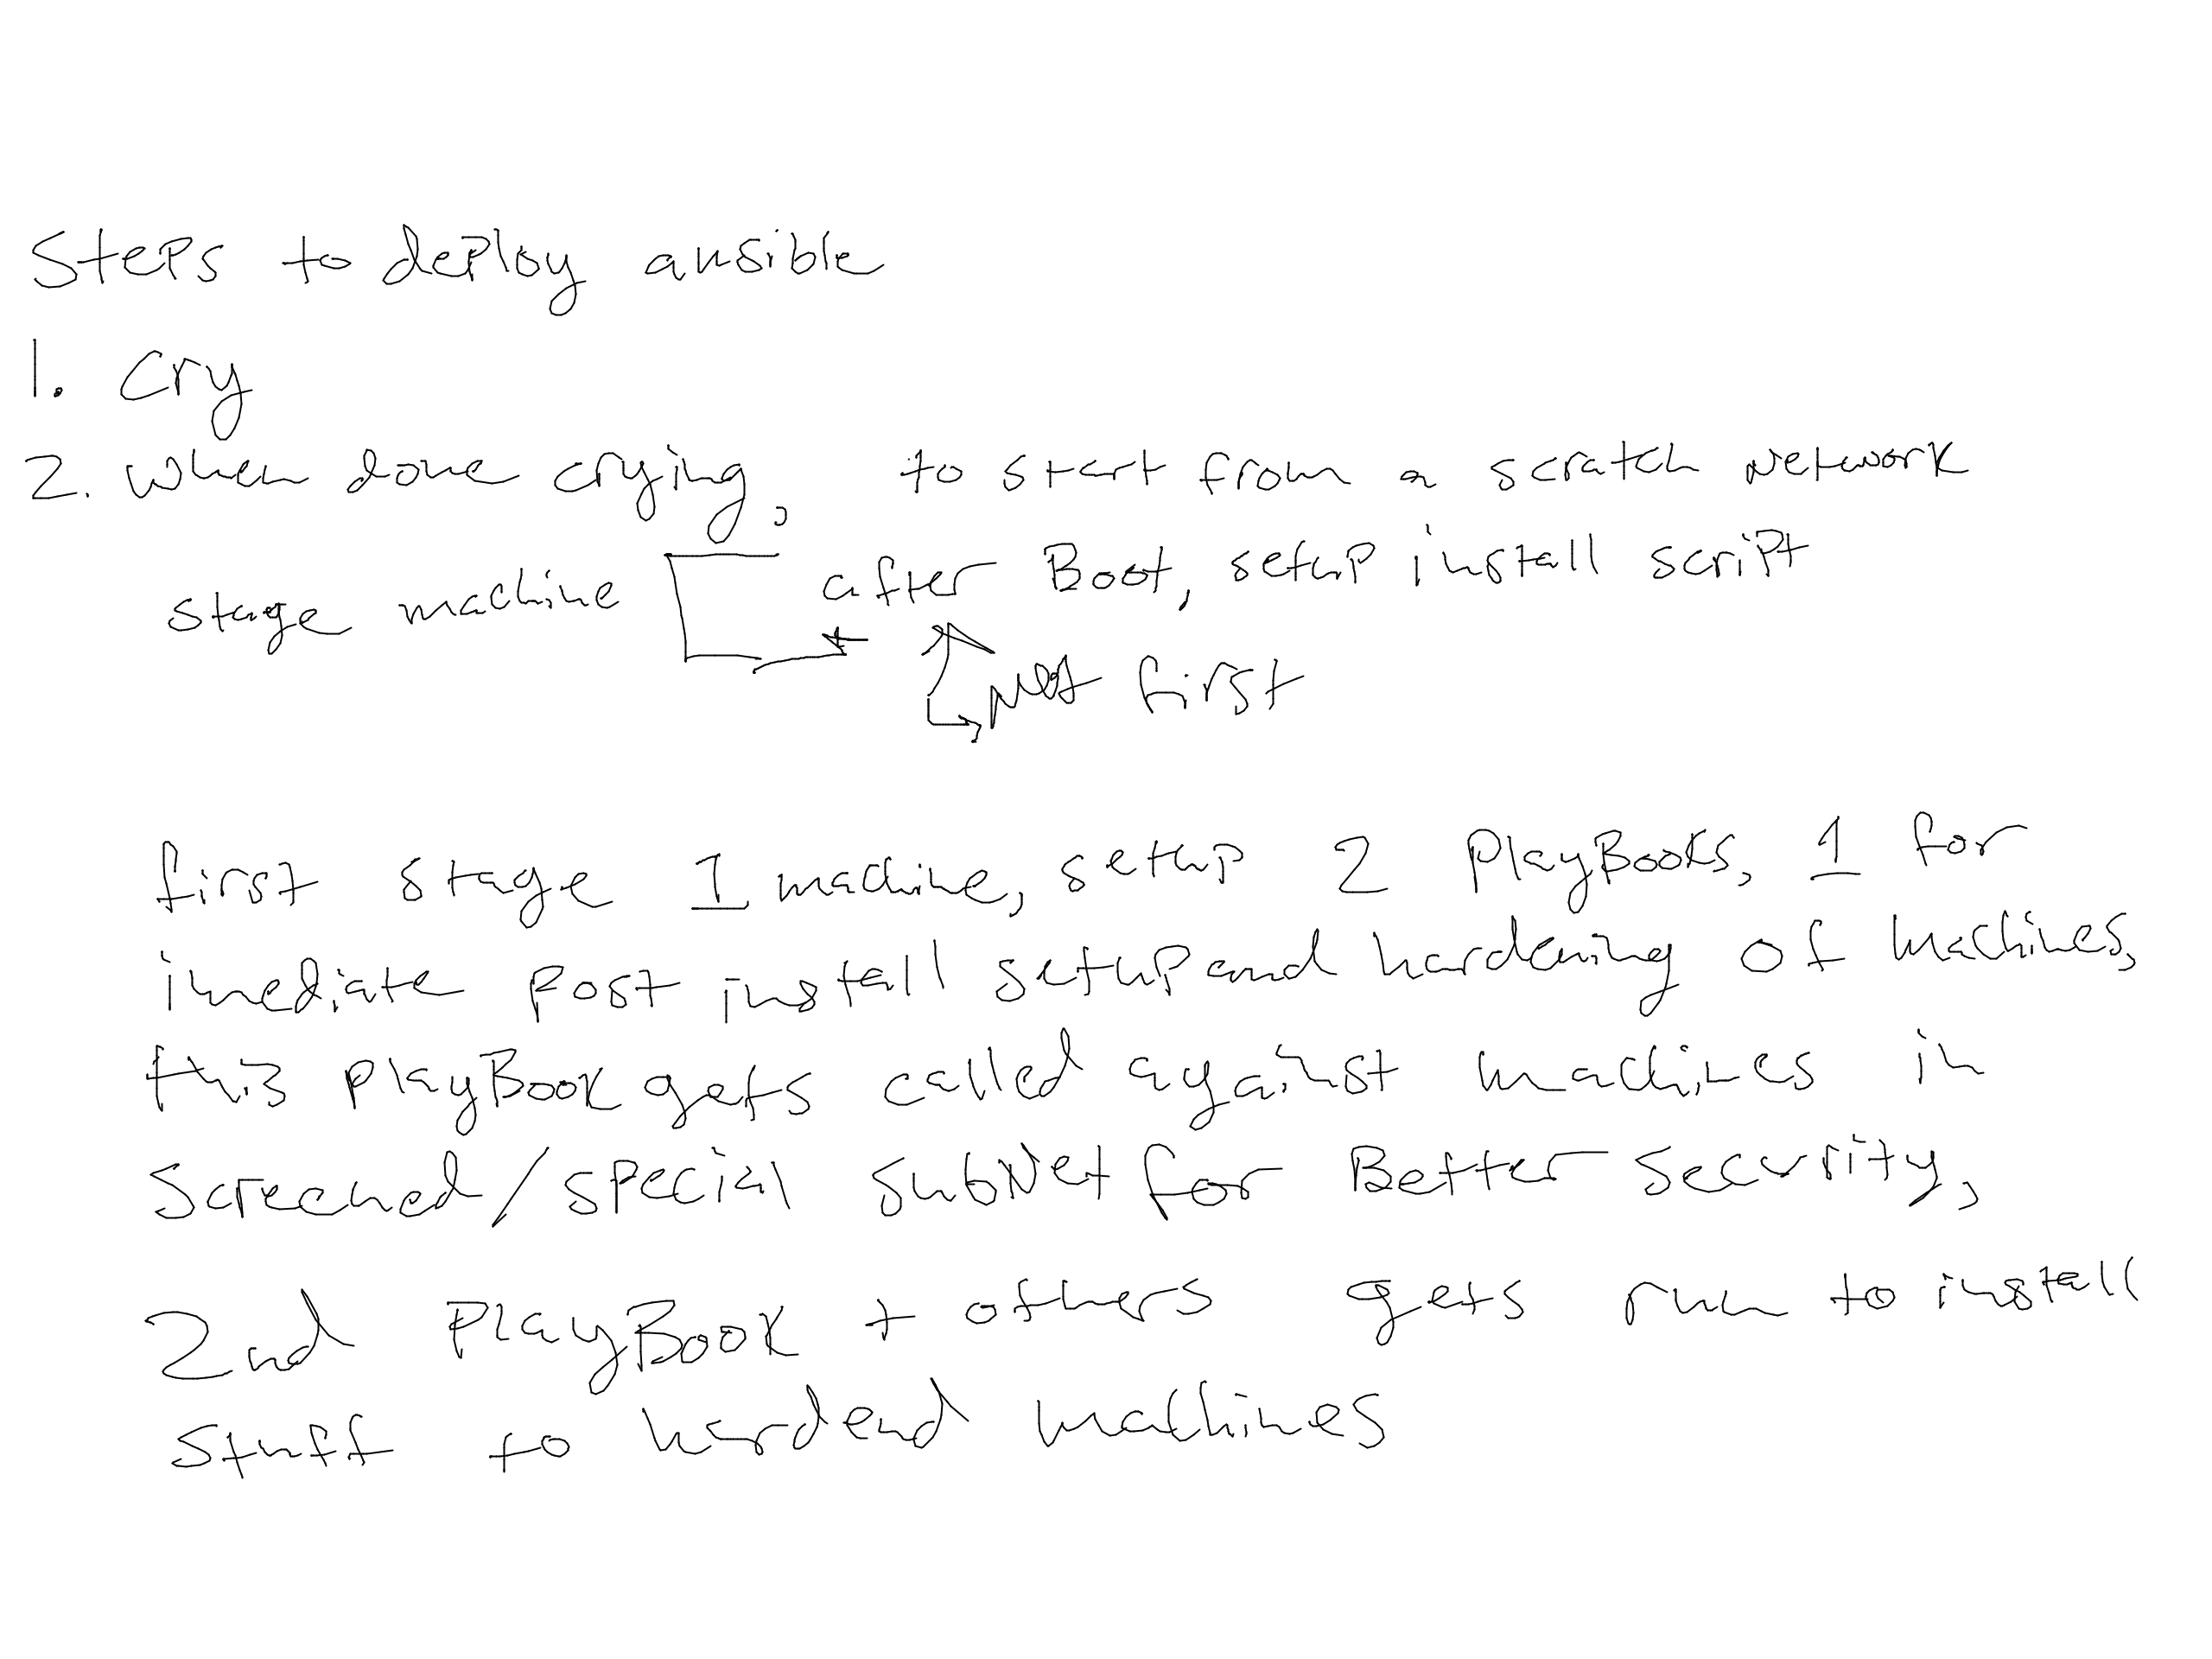 Steps to deploy ansible
1. Cry
2. When done crying, to start from a scratch network
stage machine after Boot, setup install script
Not first
first stage 1 machine, setup 2 PlayBooks, 1 for
imediate post install setup and hardening of machines,
this playBook gets called against machines in
Screened/special subNet for Better security,
2nd PlayBook + others gets run to install
stuff to hardend machines